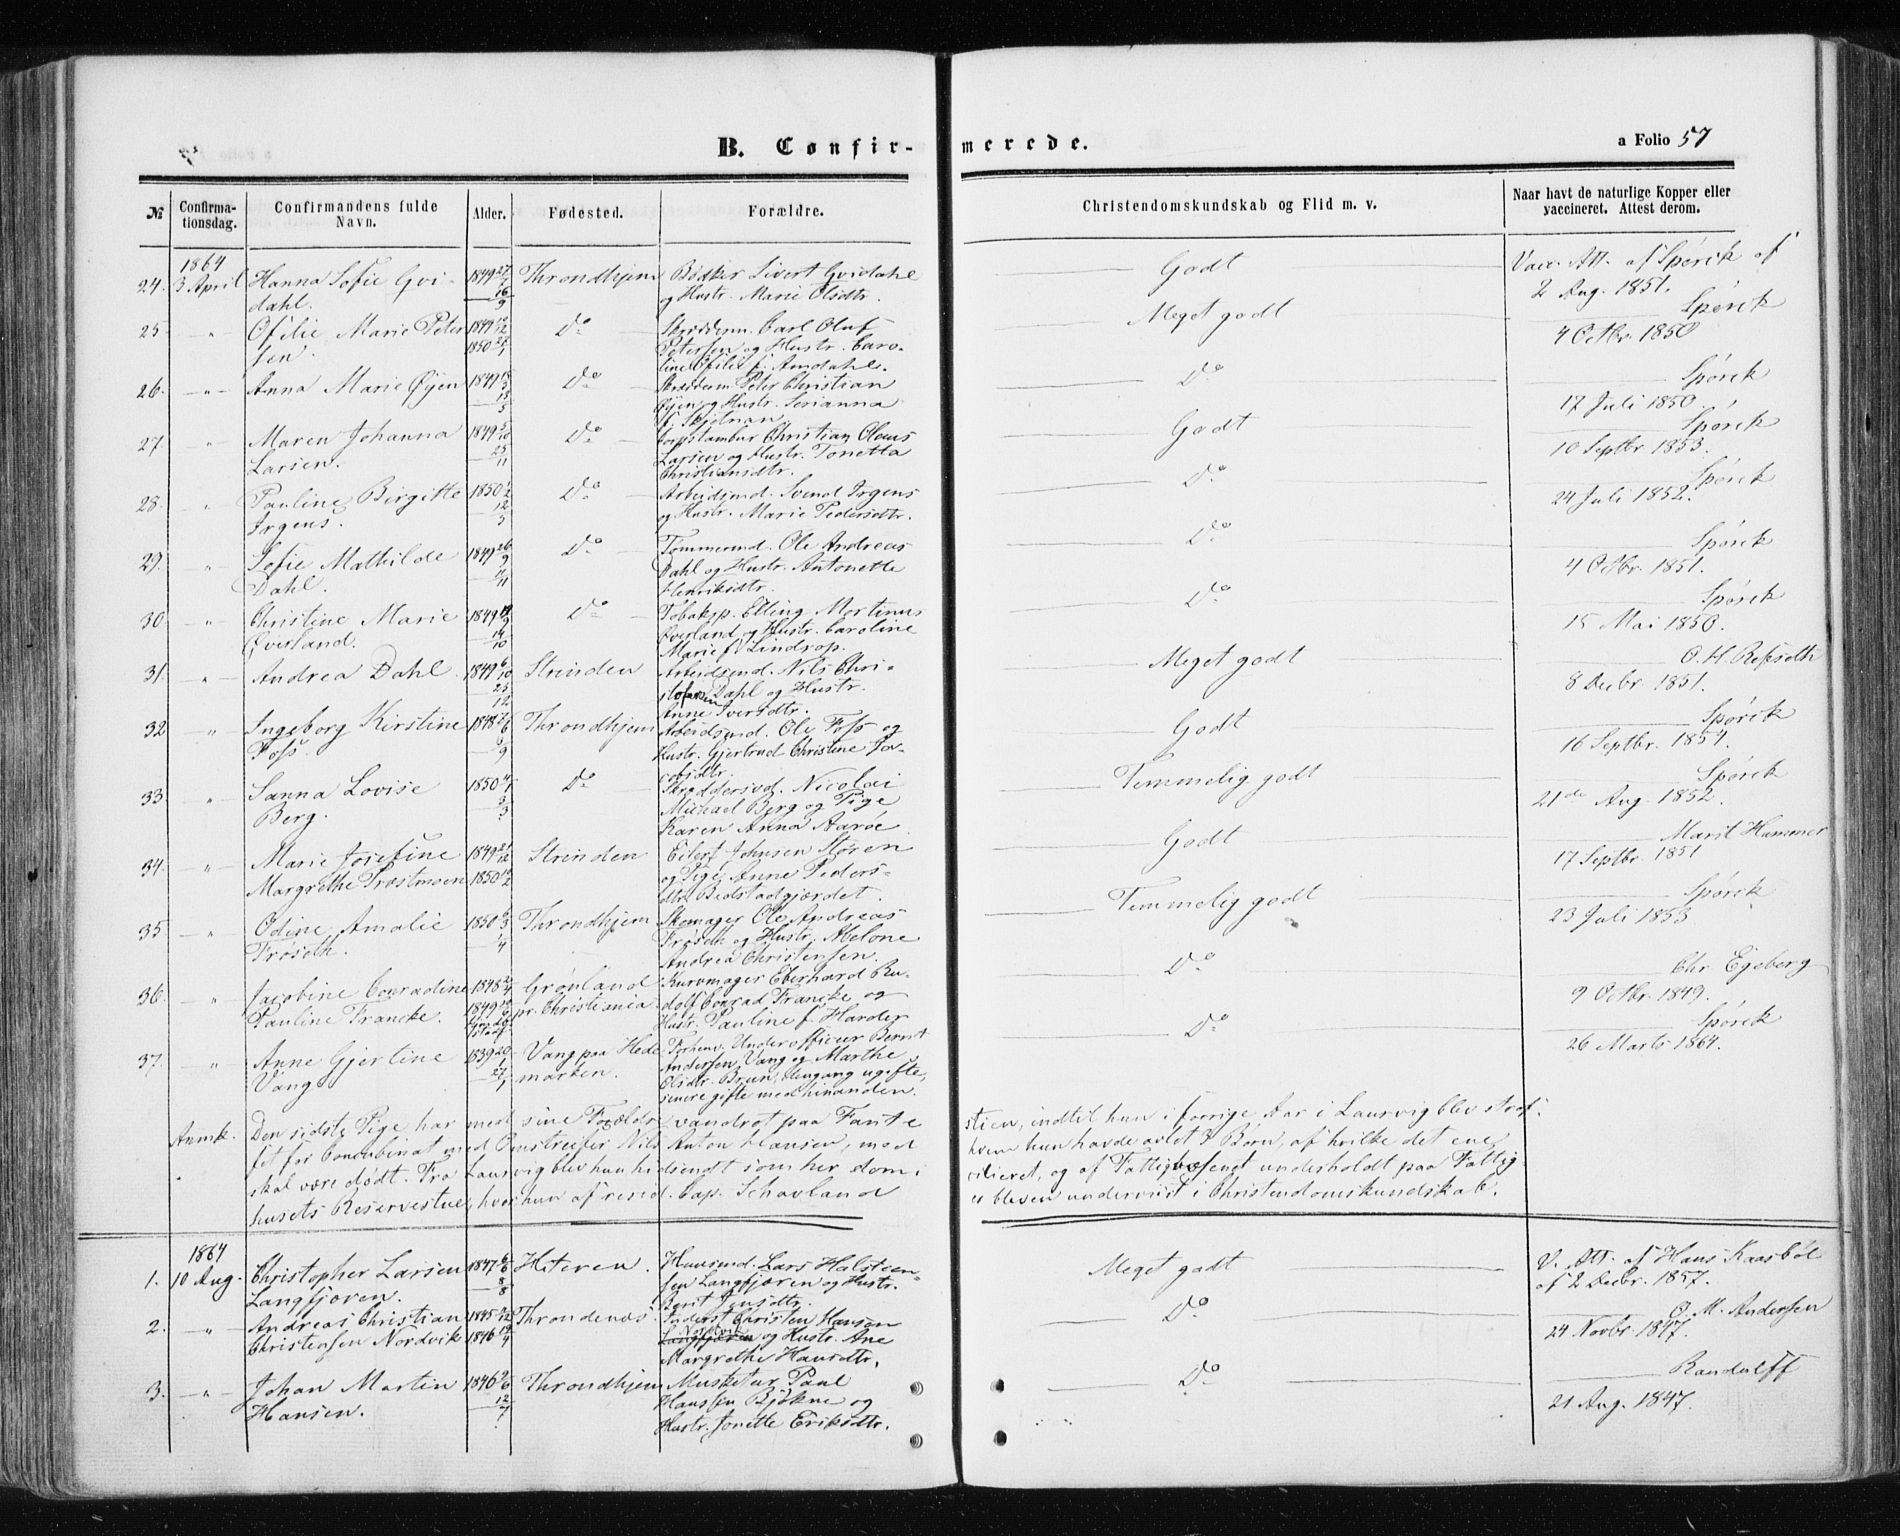 B. Confirmerede.
a Folio 57
№ Confirmationsdag. Confirmandens fulde Navn. Alder. Fødested. Forældre. Christendomskundskab og Flid m. v. Naar havt de naturlige Kopper eller vaccineret. Attest derom.
1864
24. 3 April Hanna Sofie Gvi- 1849 Throndhjem Bødker Sivert Gvidahl Godt Vacc. Att. af Spørck af
dahl. og Hustr. Marie Olsdtr. 2 Aug. 1851.
25 " Ofilie Marie Peter 1849 Do Skrædderm. Carl Oluf Meget godt Spørck
sen. 1850 Petersen og Hustr. Caro- 4 Octbr. 1850
line Ofilie f. Amdahl.
26. " Anna Marie Øyen 1849 Do Skrædderm. Peter Christian Do Spørck
Øyen og Hustr. Serianna 17 Juli 1850.
f. Skjelnan
27. " Maren Johanna 1849 Do Corpstambur Christian Olaus Godt Spørck
Larsen. Larsen og Hustr. Tonetta 10 Septbr. 1853.
Christiansdtr.
28. " Pauline Birgitte 1850 Do Arbeidsmd. Svend Irgens Do Spørck
Irgens. og Hustr. Marie Pedersdtr. 24 Juli 1852.
29. " Sofie Mathilde 1849 Do Tømmermd. Ole Andreas Do Spørck
Dahl. Dahl og Hustr. Antonette 4 Octbr. 1851.
Henriksdtr.
30 " Christine Marie 1849 Do Tobaksp. Elling Martinus Do Spørck
Øverland. Øverland og Hustr. Caroline 15 Mai 1850.
Marie f. Lindrop.
31. " Andrea Dahl 1849 Strinden Arbeidsmd. Nils Chri- Meget godt O. H. Refseth
stofersen Dahl og Hustr. 8 Decbr. 1851.
Anne Iversdtr.
32 " Ingeborg Kirstine 1848 Throndhjem Arbeidsmd. Ole Foss og Godt Spørck
Foss. Hustr. Gjertrud Christine Ja- 16 Septbr. 1854.
cobsdtr.
33. " Sanna Lovise 1850 Do Skræddersvd. Nicolai Temmelig godt Spørck
Berg. Michael Berg og Pige 21de Aug. 1852.
Karen Anna Aarøe
34. " Marie Josefine 1849 Strinden Eilert Johnsen Støren Godt Marit Hammer
Margrethe Præstmoen 1850 og Pige Anne Peders- 17 Septbr. 1851
dtr. Bedstadgjerdet.
35 " Odine Amalie 1850 Throndhjem Skomager Ole Andreas Temmelig godt Spørck
Frøseth. Frøseth og Hustr. Abelone 23 Juli 1853.
Andrea Christensen.
36. " Jacobine Conradine 1848 Grønland Kurvmager Eberhard Ru- Do Chr. Egeberg
Pauline Francke. 1849 pr. Christiania. dolf Conrad Francke og 9 Octbr. 1849.
Hustr. Pauline f. Harder
37. " Anne Gjertine 1839 Vang paa Hede Forhenv. Underofficeer Bernt Do Spørck
Vang marken. Andersen Vang og Marthe 26 Marts 1864.
Olsdtr. Brun, dengang ugifte,
senere gifte med hinanden.
Anmk. Den sidste Pige har med sine Forældre vandret paa Fante stien, indtil hun i forrige Aar i Laurvig blev straf-
fet for Concubinat med Omstreifer Nils Anton Hansen, med hvem hun havde avlet 3 Børn, af hvilke det ene
skal være dødt. Fra Laurvig blev hun hidsendt som her domi- cilieret, og af Fattigvæsenet underholdt paa Fattig-
husets Reservestue, hvor hun af resid. Cap. Schavland er bleven underviist i Christendomskundskab.
1864
1. 10 Aug. Christopher Larsen 1847 Hiteren. Huusmd. Lars Halstein- Meget godt V. Att. af Hans Kaasbøl
Langfjæren. sen Langfjæren og Hustr. af 2 Decbr. 1857.
Berit Jensdtr.
2. " Andreas Christian 1845 Throndenæs. Inderst Christen Hansen Do O. M. Andersen
Christensen Nordvik 1846 Nordvik og Hustr. Ane 24 Novbr. 1847.
Margrethe Hansdtr.
3. " Johan Martin 1846 Throndhjem Musketeer Paul Do Randulff
Hansen. Hanssen Bjökne og 21 Aug. 1847.
Hustr. Jonette Eriksdtr.